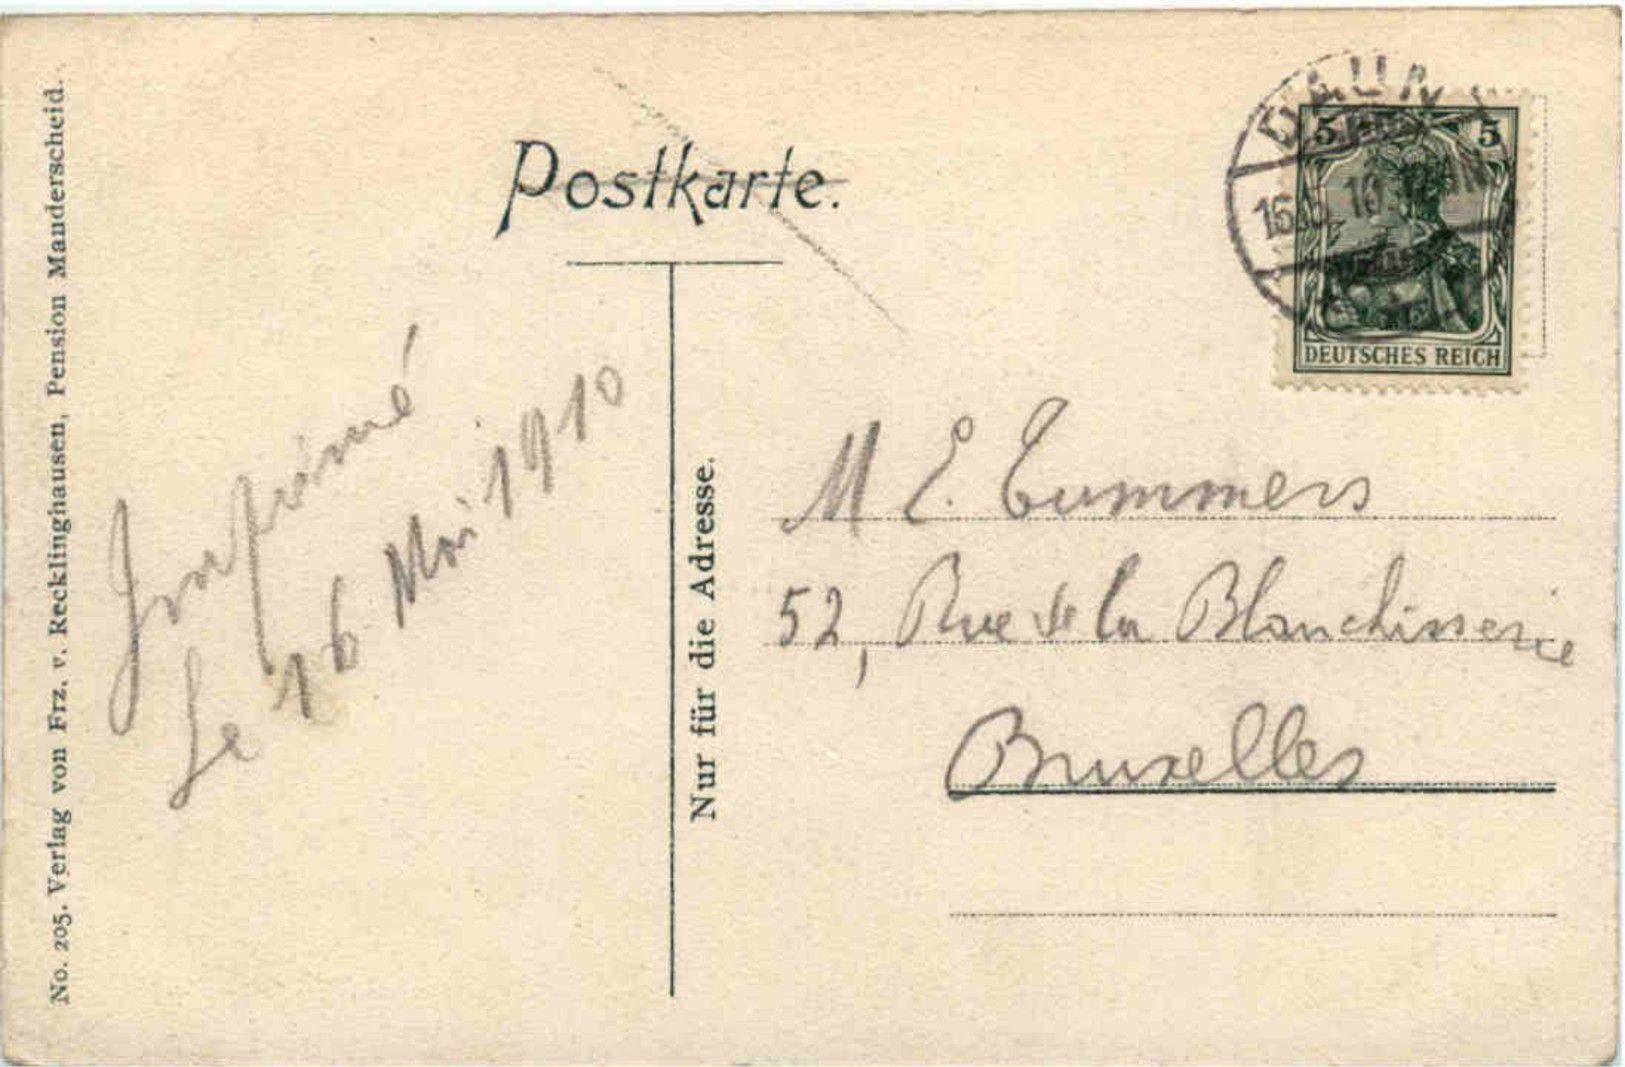 Postkarte.
DAUN
16.5.10
5 5
DEUTSCHES REICH
No. 205. Verlag von Frz. v. Recklinghausen, Pension Manderscheid.
Imprimé
Le 16 Mai 1910
Nur für die Adresse.
M E. Tummers
52, Rue de la Blanchisserie
Bruxelles